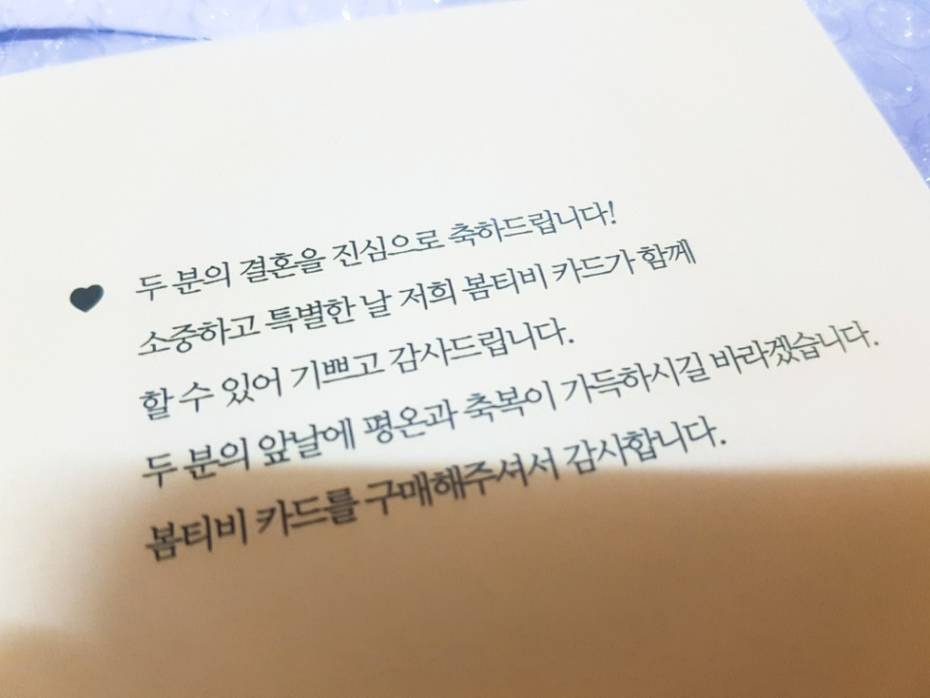 두 분의 결혼을 진심으로 축하드립니다!
소중하고 특별한 날 저희 봄티비 카드가 함께
할 수 있어 기쁘고 감사드립니다.
두 분의 앞날에 평온과 축복이 가득하시길 바라겠습니다.
봄티비 카드를 구매해주셔서 감사합니다.